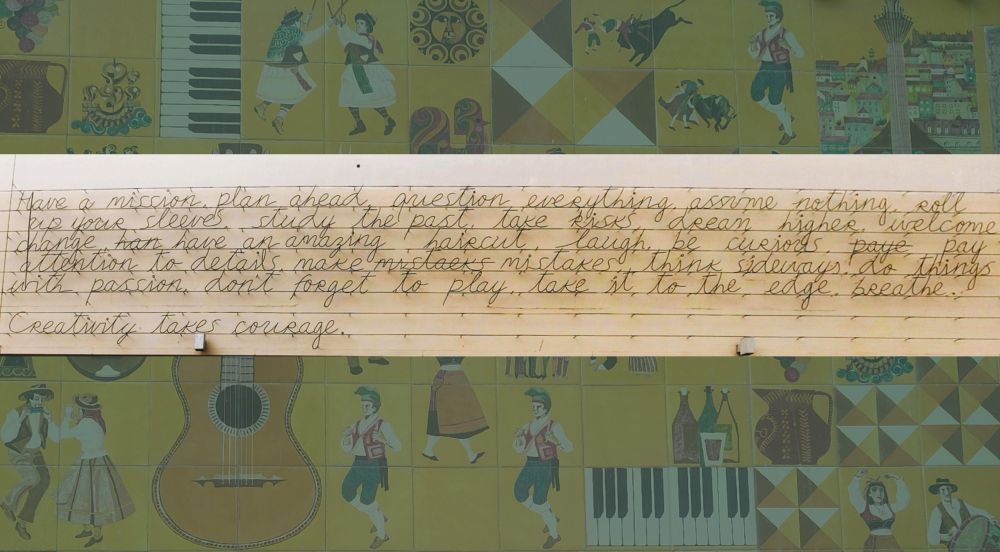 Have a mission. plan ahead. question everything. assume nothing. roll
up your sleeves. study the past. take risks. dream higher. welcome
change. han have an amazing haircut. laugh. be curious. paye pay
attention to details. make mistaeks mistakes. think sideways. do things
with passion. don't forget to play. take it to the edge. breathe..
Creativity takes courage.